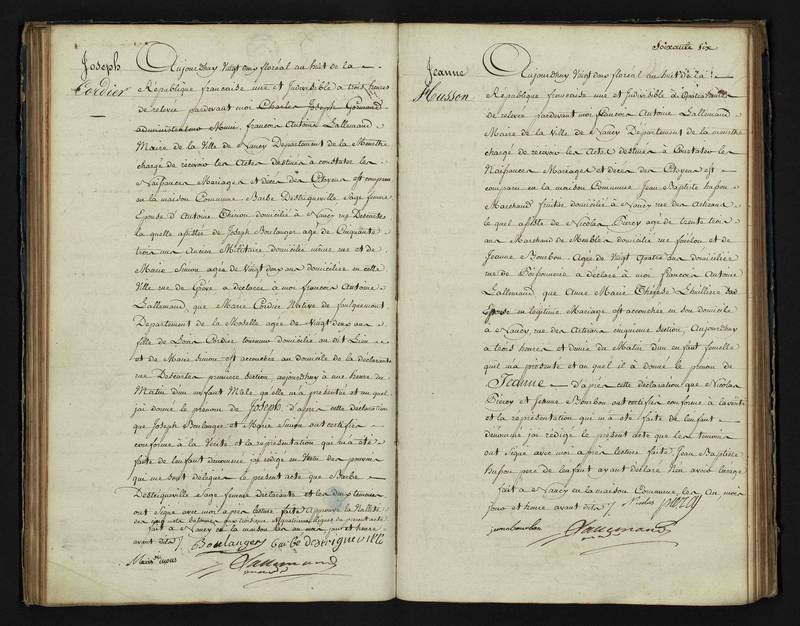 Joseph
Cordier
Aujourdhuy vingt deux floreal an huit de la
République française une et Indivisible à trois heures
de relevée pardevant moi Charles Joseph
administrateur François Antoine Lallemand
Maire de la Ville de Nancy Département de la Meurthe
chargé de recevoir les Actes destinés à constater les
Naissances Mariages et décès des Citoyens est comparu
en la maison Commune Barbe Destriqueville Sage femme
Epouse d'Antoine domicilié à Nancy rue Descartes
la quelle assistée de Joseph Boulanger agé de Cinquante
trois ans Ancien Militaire domicilié même rue et de
Marie Simon agée de Vingt deux ans domiciliée en cette
Ville rue de a déclaré à moi françois Antoine
Lallemand que Marie Cordier Native de faulquemont
Département de la Moselle agée de Vingt deux ans
fille de Louis Cordier domicilié au dit Lieu
et de Marie Simon est accouchée au domicile de la déclarante
rue Descartes première section, aujourdhuy à une heure du
Matin d'un enfant Mâle qu'elle m'a présenté et au quel
j'ai donné le prenom de Joseph d'après cette déclaration
que Joseph Boulanger et Marie Simon ont certifiée
conforme à la Vérité et la représentation qui m'a été
faite de l'enfant denommé j'ai rédigé en Vertu des pouvoirs
qui me sont délégués le present acte que Barbe
Destriqueville Sage femme déclarante et les deux témoins
ont Signé avec moi après lecture faite approuvé la Nullité
de
fait à Nancy en la maison les an mois jour et heure
avant dits
Boulanger barbe destriqueville
Marie Simon
Lallemand
Soixante six
Jeanne
Husson
Aujourdhuy Vingt deux floreal an huit de la
République française une et Indivisible à quatre heures
de relevée pardevant moi françois Antoine Lallemand
Maire de la Ville de Nancy Département de la meurthe
chargé de recevoir les Actes destinés à Constater les
Naissances Mariages et décès des Citoyens est
comparu en la maison Commune Jean Baptiste husson
Marchand fruitier domicilié à Nancy rue des Artisans
le quel assisté de Nicolas Piercy agé de trente trois
ans Marchand de Meubles domicilié rue et de
Jeanne Bourbon Agée de Vingt Quatre ans domiciliée
rue de Poissonnerie a déclaré à moi françois Antoine
Lallemand que Anne Marie Thérèse Lhuillier Son
Epouse en légitime Mariage est accouchée en son domicile
à Nancy rue des Artisans cinquieme Section, Aujourdhuy
à trois heures et demie du Matin d'un enfant femelle
qu'il m'a présenté et au quel il a donné le prenom de
Jeanne d'après cette déclaration que Nicolas
Piercy et Jeanne Bourbon ont certifiée conforme à la vérité
et la représentation qui m'a été faite de l'enfant
dénommé j'ai rédigé le présent acte que les témoins
ont Signé avec moi après lecture faite, Jean Baptiste
husson pere de l'enfant ayant déclaré n'en avoir l'usage
fait à Nancy en la maison Commune les An mois
jour et heure avant dits Nicolas piercy
jeanne bourbon
Lallemand